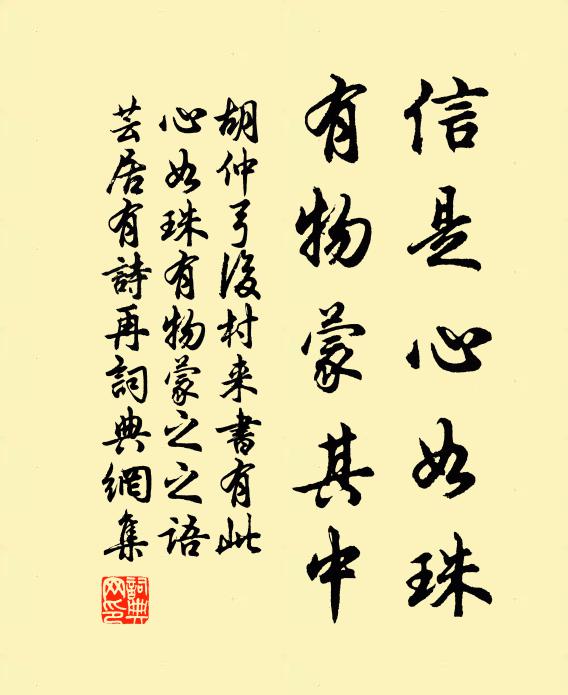 信是心如珠
有物蒙其中
胡仲弓後村来書有此
心如珠有物蒙之之語
芸居有詩再詞典網集
詞典網印